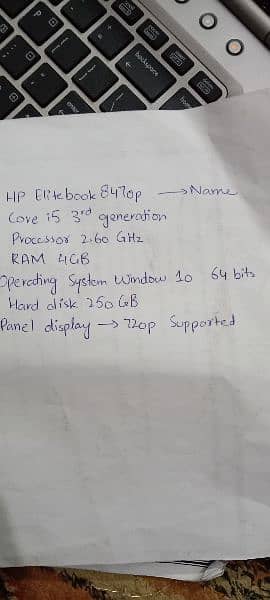 P
backspace
enter
home
HP Elitebook 8470p → Name
Core i5 3rd generation
Processor 2.60 GHz
RAM 4GB
Operating System Window 10 64 bits
Hard disk 250 GB
Panel display → 720p Supported